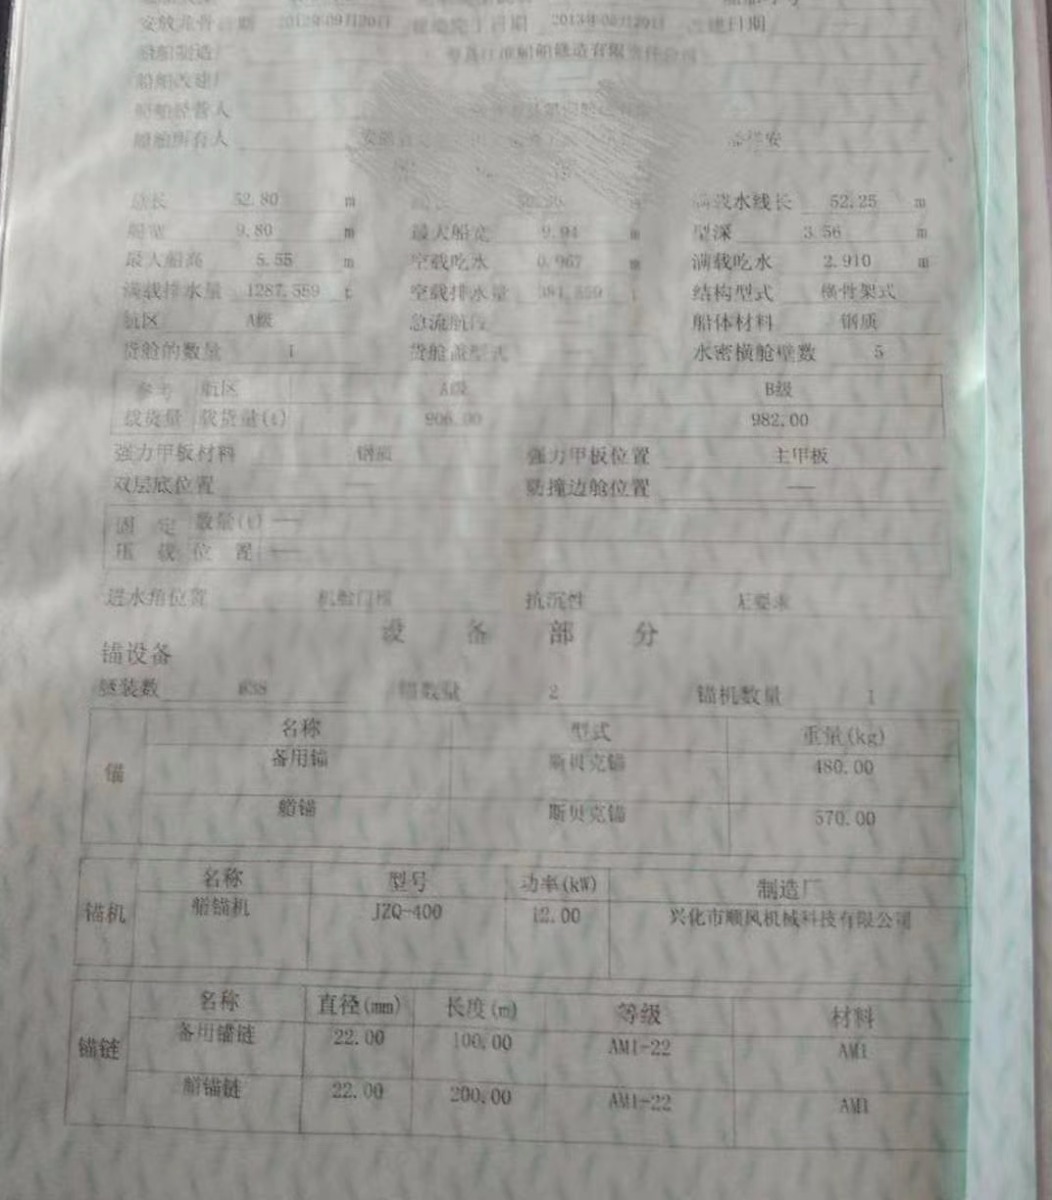 安放龙骨日期 2012年09月20日 建造完工日期 2013年06月20日 改建日期 —
船舶制造厂 船舶修造有限责任公司
船舶改建厂 —
船舶经营人
船舶所有人
总长 52.80 m 满载水线长 52.25 m
船宽 9.80 m 最大船宽 9.94 m 型深 3.56 m
最大船高 5.55 m 空载吃水 0.967 m 满载吃水 2.910 m
满载排水量 1287.559 t 空载排水量 381.559 t 结构型式 横骨架式
航区 A级 急流航段 — 船体材料 钢质
货舱的数量 1 货舱盖型式 — 水密横舱壁数 5
参考 航区 A级 B级
载货量 载货量(t) 906.00 982.00
强力甲板材料 钢质 强力甲板位置 主甲板
双层底位置 — 防撞边舱位置 —
固定 数量(t) —
压载 位置 —
进水角位置 机舱门槛 抗沉性 无要求
设备部分
锚设备
舾装数 锚数量 2 锚机数量 1
名称 型式 重量(kg)
锚 备用锚 斯贝克锚 480.00
艏锚 斯贝克锚 570.00
名称 型号 功率(kW) 制造厂
锚机 艏锚机 JZQ-400 12.00 兴化市顺风机械科技有限公司
名称 直径(mm) 长度(m) 等级 材料
锚链 备用锚链 22.00 100.00 AM1-22 AM1
艏锚链 22.00 200.00 AM1-22 AM1